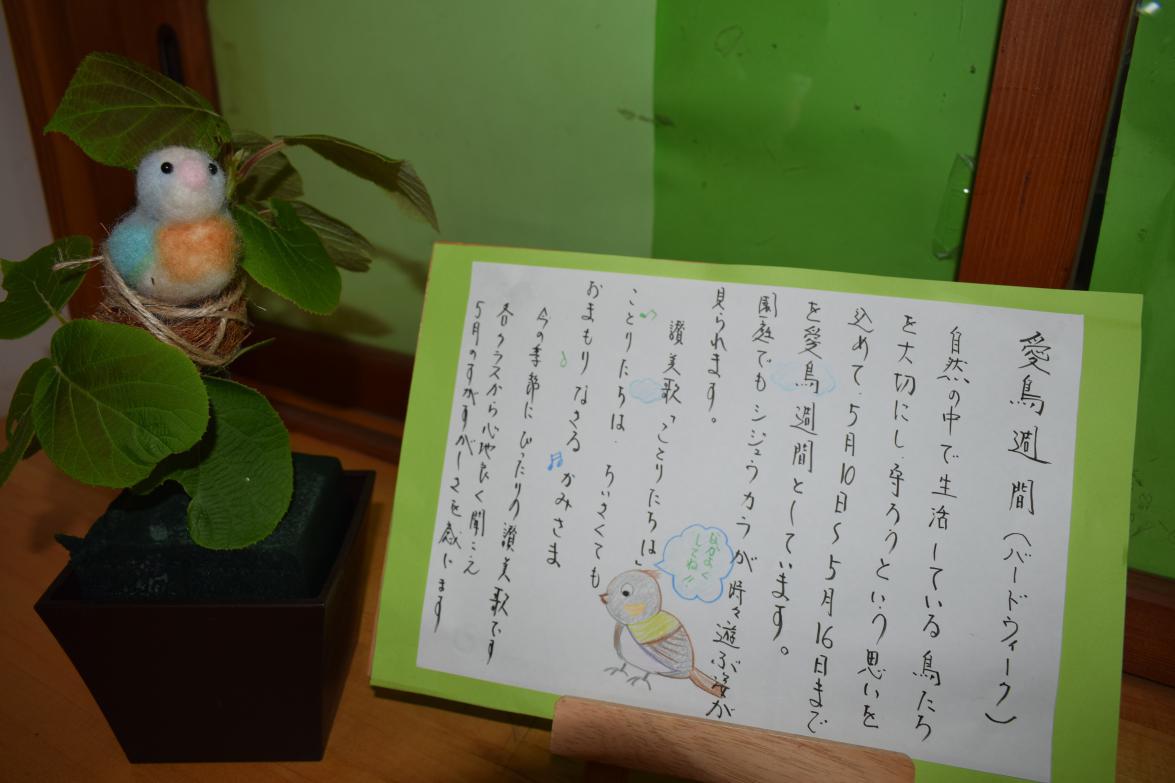 愛鳥週間(バードウィーク)
自然の中で生活している鳥たち
を大切にし、守ろうという思いを
込めて、5月10日〜5月16日まで
を愛鳥週間としています。
園庭でもシジュウカラが時々遊ぶ姿が
見られます。
讃美歌「ことりたちは」
ことりたちは、ちいさくても
おまもりなさる かみさま
今の季節にぴったりの讃美歌です
各クラスから心地良く聞こえ
5月のすがすがしさを感じます
なかよく
してね!!